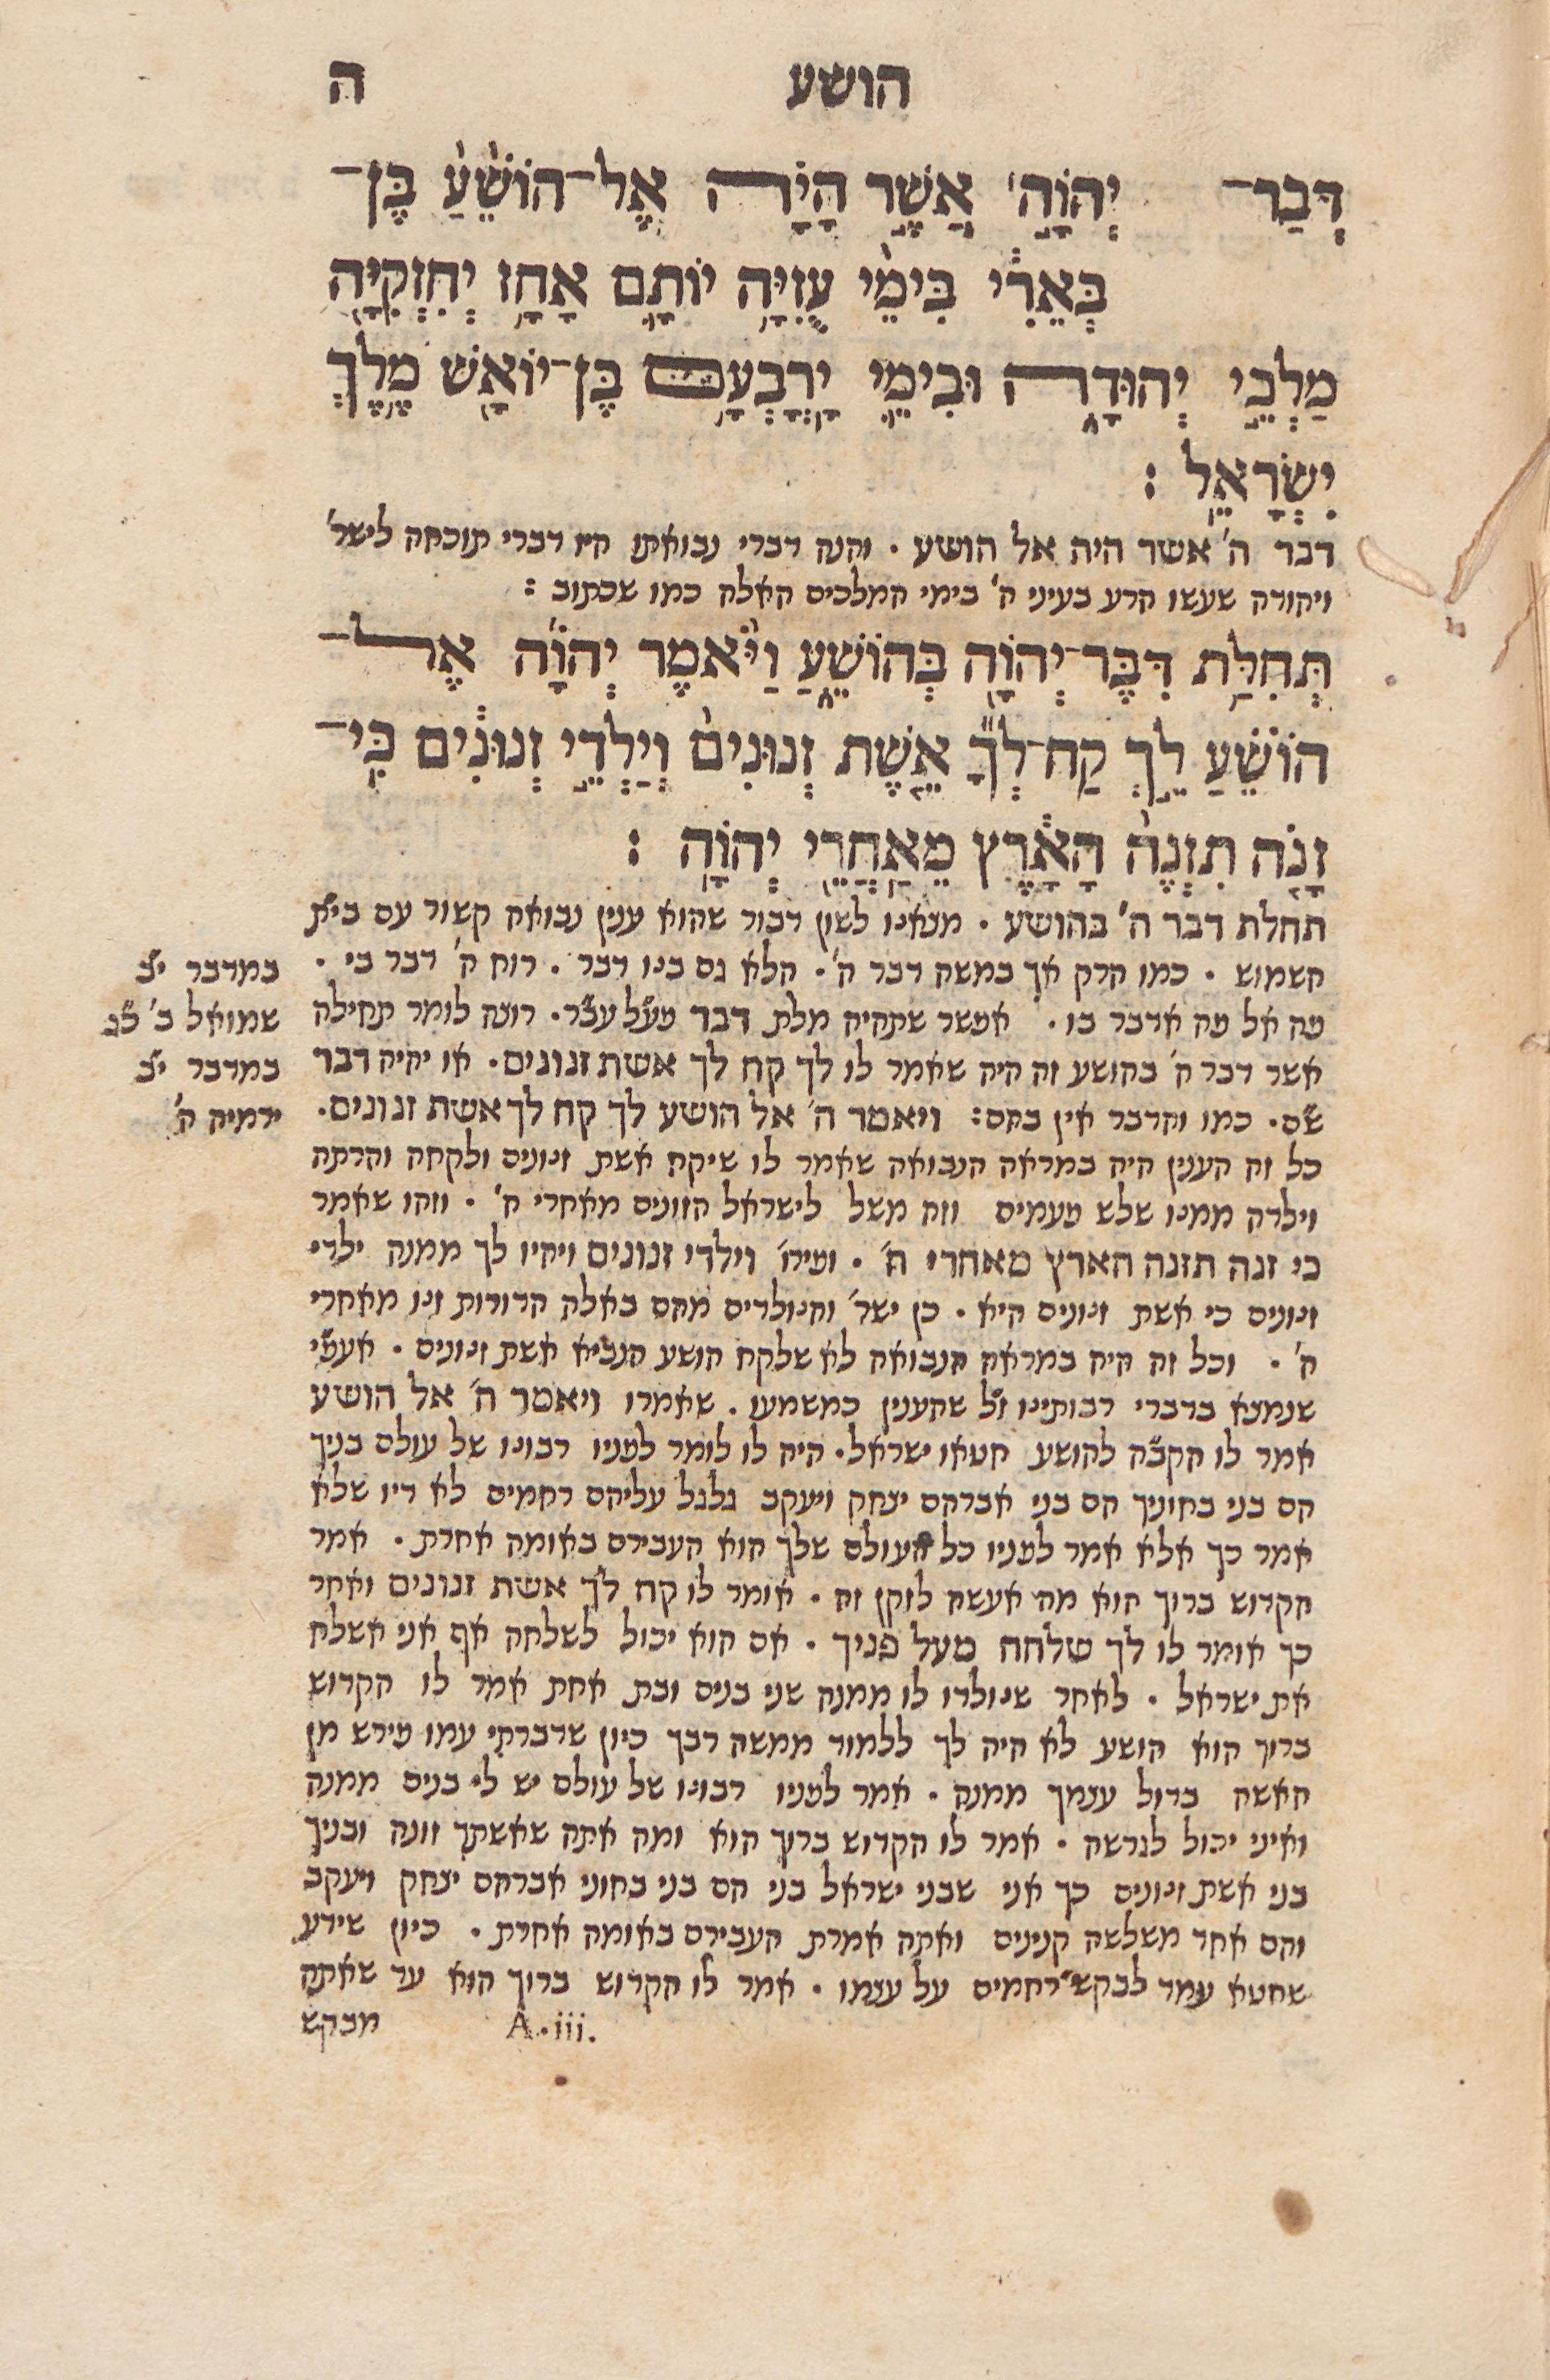 הושע ה
דְּבַר־ יְהוָ֣ה׀ אֲשֶׁ֣ר הָיָ֗ה אֶל־הוֹשֵׁ֙עַ֙ בֶּן־
בְּאֵרִ֔י בִּימֵ֨י עֻזִּיָּ֥ה יוֹתָ֛ם אָחָ֥ז יְחִזְקִיָּ֖ה
מַלְכֵ֣י יְהוּדָ֑ה וּבִימֵ֛י יָרָבְעָ֥ם בֶּן־יוֹאָ֖שׁ מֶ֥לֶךְ
יִשְׂרָאֵֽל :
דבר ה' אשר היה אל הושע . והנה דברי נבואתו היו דברי תוכחה לישר'
ויהודה שעשו הרע בעיני ה' בימי המלכים האלה כמו שכתוב :
תְּחִלַּ֥ת דִּבֶּר־יְהוָ֖ה בְּהוֹשֵׁ֑עַ וַיֹּ֨אמֶר יְהוָ֜ה אֶל־
הוֹשֵׁ֗עַ לֵ֣ךְ קַח־לְךָ֞ אֵ֤שֶׁת זְנוּנִים֙ וְיַלְדֵ֣י זְנוּנִ֔ים כִּֽי־
זָנֹ֤ה תִזְנֶה֙ הָאָ֔רֶץ מֵאַחֲרֵ֖י יְהוָֽה :
תחלת דבר ה' בהושע . מצאנו לשון דבור שהוא ענין נבואה קשור עם בי״ת
השמוש . כמו הרק אך במשה דבר ה'. הלא גם בנו דבר . רוח ה' דבר בי .
במדבר י״ב
פה אל פה אדבר בו . אפשר שתהיה מלת דבר פע״ל עב״ר. רוצה לומר תחילה
שמואל ב' כ״ג
אשר דבר ה' בהושע זה היה שאמר לו לך קח לך אשת זנונים. או יהיה דבר
במדבר י״ב
ש״ם. כמו והדבר אין בהם: ויאמר ה' אל הושע לך קח לך אשת זנונים.
ירמיה ה'
כל זה הענין היה במראה הנבואה שאמר לו שיקח אשת זנונים ולקחה והרתה
וילדה ממנו שלש פעמים וזה משל לישראל הזונים מאחרי ה' . וזהו שאמר
כי זנה תזנה הארץ מאחרי ה' . ופיר' וילדי זנונים ויהיו לך ממנה ילדי
זנונים כי אשת זנונים היא . כן ישר' והנולדים מהם באלה הדורות זנו מאחרי
ה' . וכל זה היה במראה הנבואה לא שלקח הושע הנביא אשת זנונים . אעפ״י
שנמצא בדברי רבותינו ז״ל שהענין כמשמעו . שאמרו ויאמר ה' אל הושע
אמר לו הקב״ה להושע חטאו ישראל. היה לו לומר לפניו רבונו של עולם בניך
הם בני בחוניך הם בני אברהם יצחק ויעקב גלגל עליהם רחמים לא דיו שלא
אמר כך אלא אמר לפניו כל העולם שלך הוא העבירם באומה אחרת . אמר
הקדוש ברוך הוא מה אעשה לזקן זה . אומר לו קח לך אשת זנונים ואחר
כך אומר לו לך שלחה מעל פניך . אם הוא יכול לשלחה אף אני אשלח
את ישראל . לאחר שנולדו לו ממנה שני בנים ובת אחת אמר לו הקדוש
ברוך הוא הושע לא היה לך ללמוד ממשה רבך כיון שדברתי עמו פירש מן
האשה בדול עצמך ממנה . אמר לפניו רבונו של עולם יש לי בנים ממנה
ואיני יכול לגרשה . אמר לו הקדוש ברוך הוא ומה אתה שאשתך זונה ובניך
בני אשת זנונים כך אני שבני ישראל בני הם בני בחוני אברהם יצחק ויעקב
והם אחד משלשה קנינים ואתה אמרת העבירם באומה אחרת . כיון שידע
שחטא עמד לבקש רחמים על עצמו . אמר לו הקדוש ברוך הוא עד שאתה
A.iii. מבקש